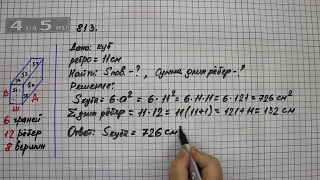 4 5
813.
Дано: куб
ребро = 11см
Найти: Sпов. - ?, Сумма длин рёбер - ?
Решение:
Sкуба = 6·a² = 6·11² = 6·11·11 = 6·121 = 726 см²
Σ длин рёбер = 11·12 = 11(11+1) = 121+11 = 132 см
Ответ: Sкуба = 726 см
В
Ш
Д
6 граней
12 рёбер
8 вершин